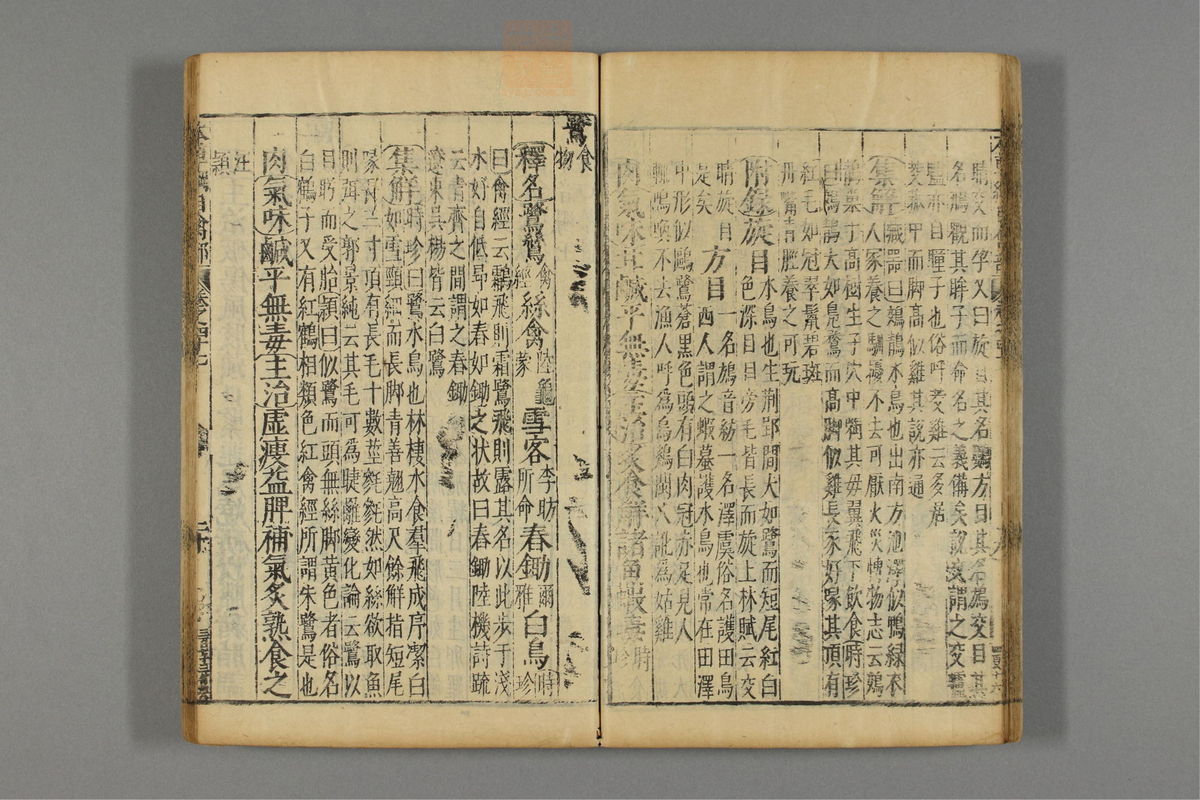 睛交而孕又曰旋目其名鸀方目其名鳩交目其
名鳽觀其眸子而命名之義備矣說文謂之交鸕
盖亦目瞳子也俗呼茭雞云多居
茭菰中而脚高似雞其說亦通
集解藏器曰鵁鶄水鳥也出南方池澤似鴨綠衣
人家養之馴擾不去可厭火災博物志云鵁
鶄巢于高樹生子穴中銜其母翼飛下飲食時珍
曰鵁鶄大如鳧鶩而高脚似雞長喙好啄其頂有
紅毛如冠翠鬛碧斑
丹觜青脛養之可玩
附錄旋目水鳥也生荆郢間大如鷺而短尾紅白
色深目目旁毛皆長而旋上林賦云交
睛旋目方目一名鳩音紡一名澤虞俗名護田鳥
是矣西人謂之蝦蟇護水鳥也常在田澤
中形似鷗鷺蒼黑色頭有白肉冠赤足見人
輒鳴喚不去漁人呼為烏雞閩人訛為姑雞
肉氣味甘鹹平無毒主治炙食解諸魚蝦毒時
鷺食物
釋名鷺鷥禽經絲禽陸龜蒙雪客李昉所命春鋤爾雅白鳥時珍
曰禽經云鸘飛則霜鷺飛則露其名以此步于淺
水好自低昂如舂如鋤之状故曰舂鋤陸機詩疏
云青齊之間謂之舂鋤
遼東吳楊皆云白鷺
集解時珍曰鷺水鳥也林棲水食羣飛成序潔白
如雪頸細而長脚青善翹高尺餘觧指短尾
喙長三寸頂有長毛十數莖毿毿然如絲欲取魚
則弭之郭景純云其毛可為睫䍦變化論云鷺以
目盻而受胎頴曰似鷺而頭無絲脚黄色者俗名
白鶴子又有紅鶴相類色紅禽經所謂朱鷺是也
肉氣味鹹平無毒主治虛瘦益脾補氣炙熟食之
汪頴